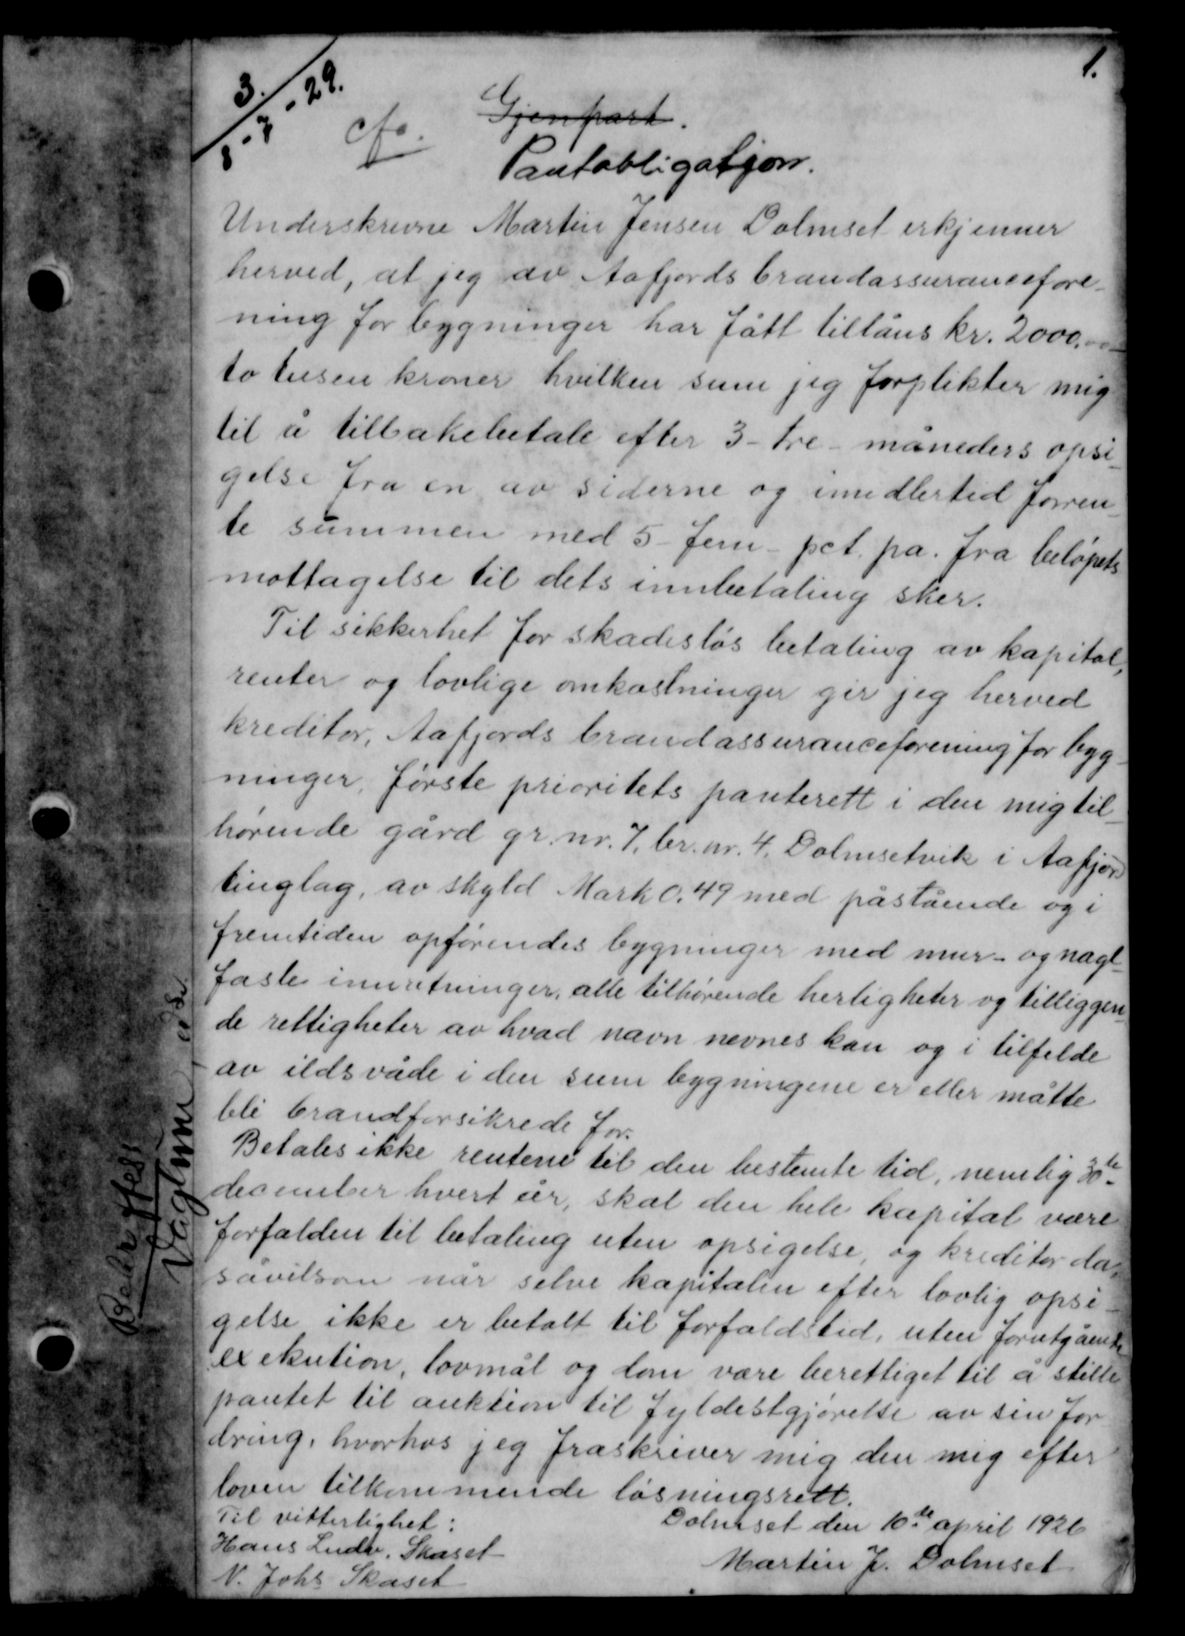 1.
3.
8-7-29.
cfo.
Gjenpart.
Pantobligasjon.
Underskrevne Martin Jensen Dolmset erkjenner
herved, at jeg av Aafjords brandassurancefore-
ning for bygninger har fått tillåns kr. 2000.00
to tusen kroner hvilken sum jeg forplikter mig
til å tilbakebetale efter 3- tre- måneders opsi-
gelse fra en av siderne og imidlertid forren-
te summen med 5- fem- pct. pa. fra beløpets
mottagelse til dets innbetaling sker.
Til sikkerhet for skadesløs betaling av kapital,
renter og lovlige omkostninger gir jeg herved
kreditor, Aafjords brandassuranceforening for byg-
ninger, første prioritets panterett i den mig til-
hørende gård gr. nr. 7, br. nr. 4, Dolmsetvik i Aafjord
tinglag, av skyld Mark 0.49 med påstående og i
fremtiden opførendes bygninger med mur- og nagl-
faste innretninger, alle tilhørende herligheter og tilliggen-
de rettigheter av hvad navn nevnes kan og i tilfelde
av ildsvåde i den sum bygningene er eller måtte
bli brandforsikrede for.
Betales ikke rentene til den bestemte tid, nemlig 30te
december hvert år, skal den hele kapital være
forfalden til betaling uten opsigelse, og kreditor da,
såvelsom når selve kapitalen efter lovlig opsi-
gelse ikke er betalt til forfaldstid, uten forutgående
exekution, lovmål og dom være berettiget til å stille
pantet til auktion til fyldestgjørelse av sin for-
dring, hvorhos jeg fraskriver mig den mig efter
loven tilkommende løsningsrett.
Til vitterlighet:
Dolmset den 10de april 1926
Hans Ludv. Skaset
Martin J. Dolmset
N. Johs Skaset